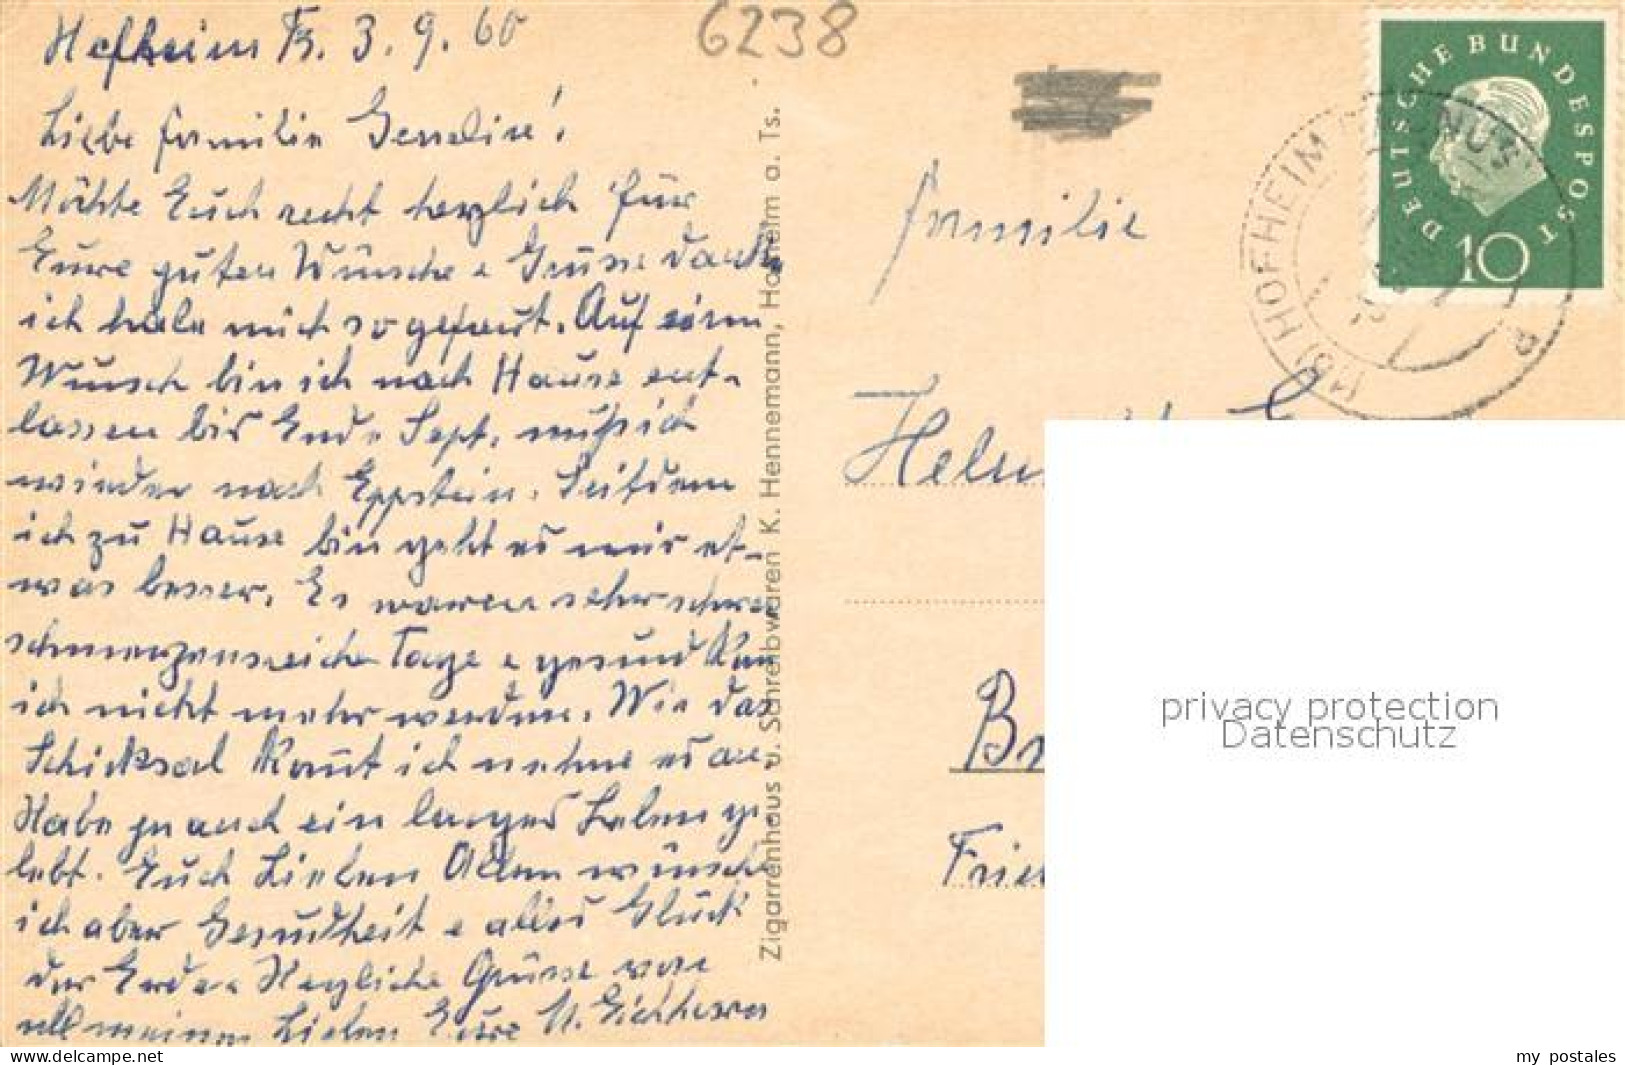 Hofheim Ts. 3.9.60
6238
Liebe Familie
Möchte Euch recht herzlich für
Eure guten Wünsche u Grüsse danke
ich habe mich so gefreut. Auf
Wunsch bin ich nach Hause ent-
lassen bis Ende Sept. muß ich
wieder nach Eppstein. Seitdem
ich zu Hause bin geht es mir et-
was besser. Es waren sehr schwe
schmerzensreiche Tage u gesund kan
ich nicht mehr werden. Wie das
Schicksal kommt ich nehme es an.
Habe ja auch ein langes Leben ge
lebt. Euch Lieben Allen wünsche
ich aber Gesundheit u alles Glück
der Erde u Herzliche Grüsse von
all meinen Lieben Eure
Zigarrenhaus u. Schreibwaren K. Hennemann, Hofheim a. Ts.
Familie
Br
Frie
DEUTSCHE BUNDESPOST
10
(16) HOFHEIM (TAUNUS)
privacy protection
Datenschutz
my postales
le plus grand site de collections